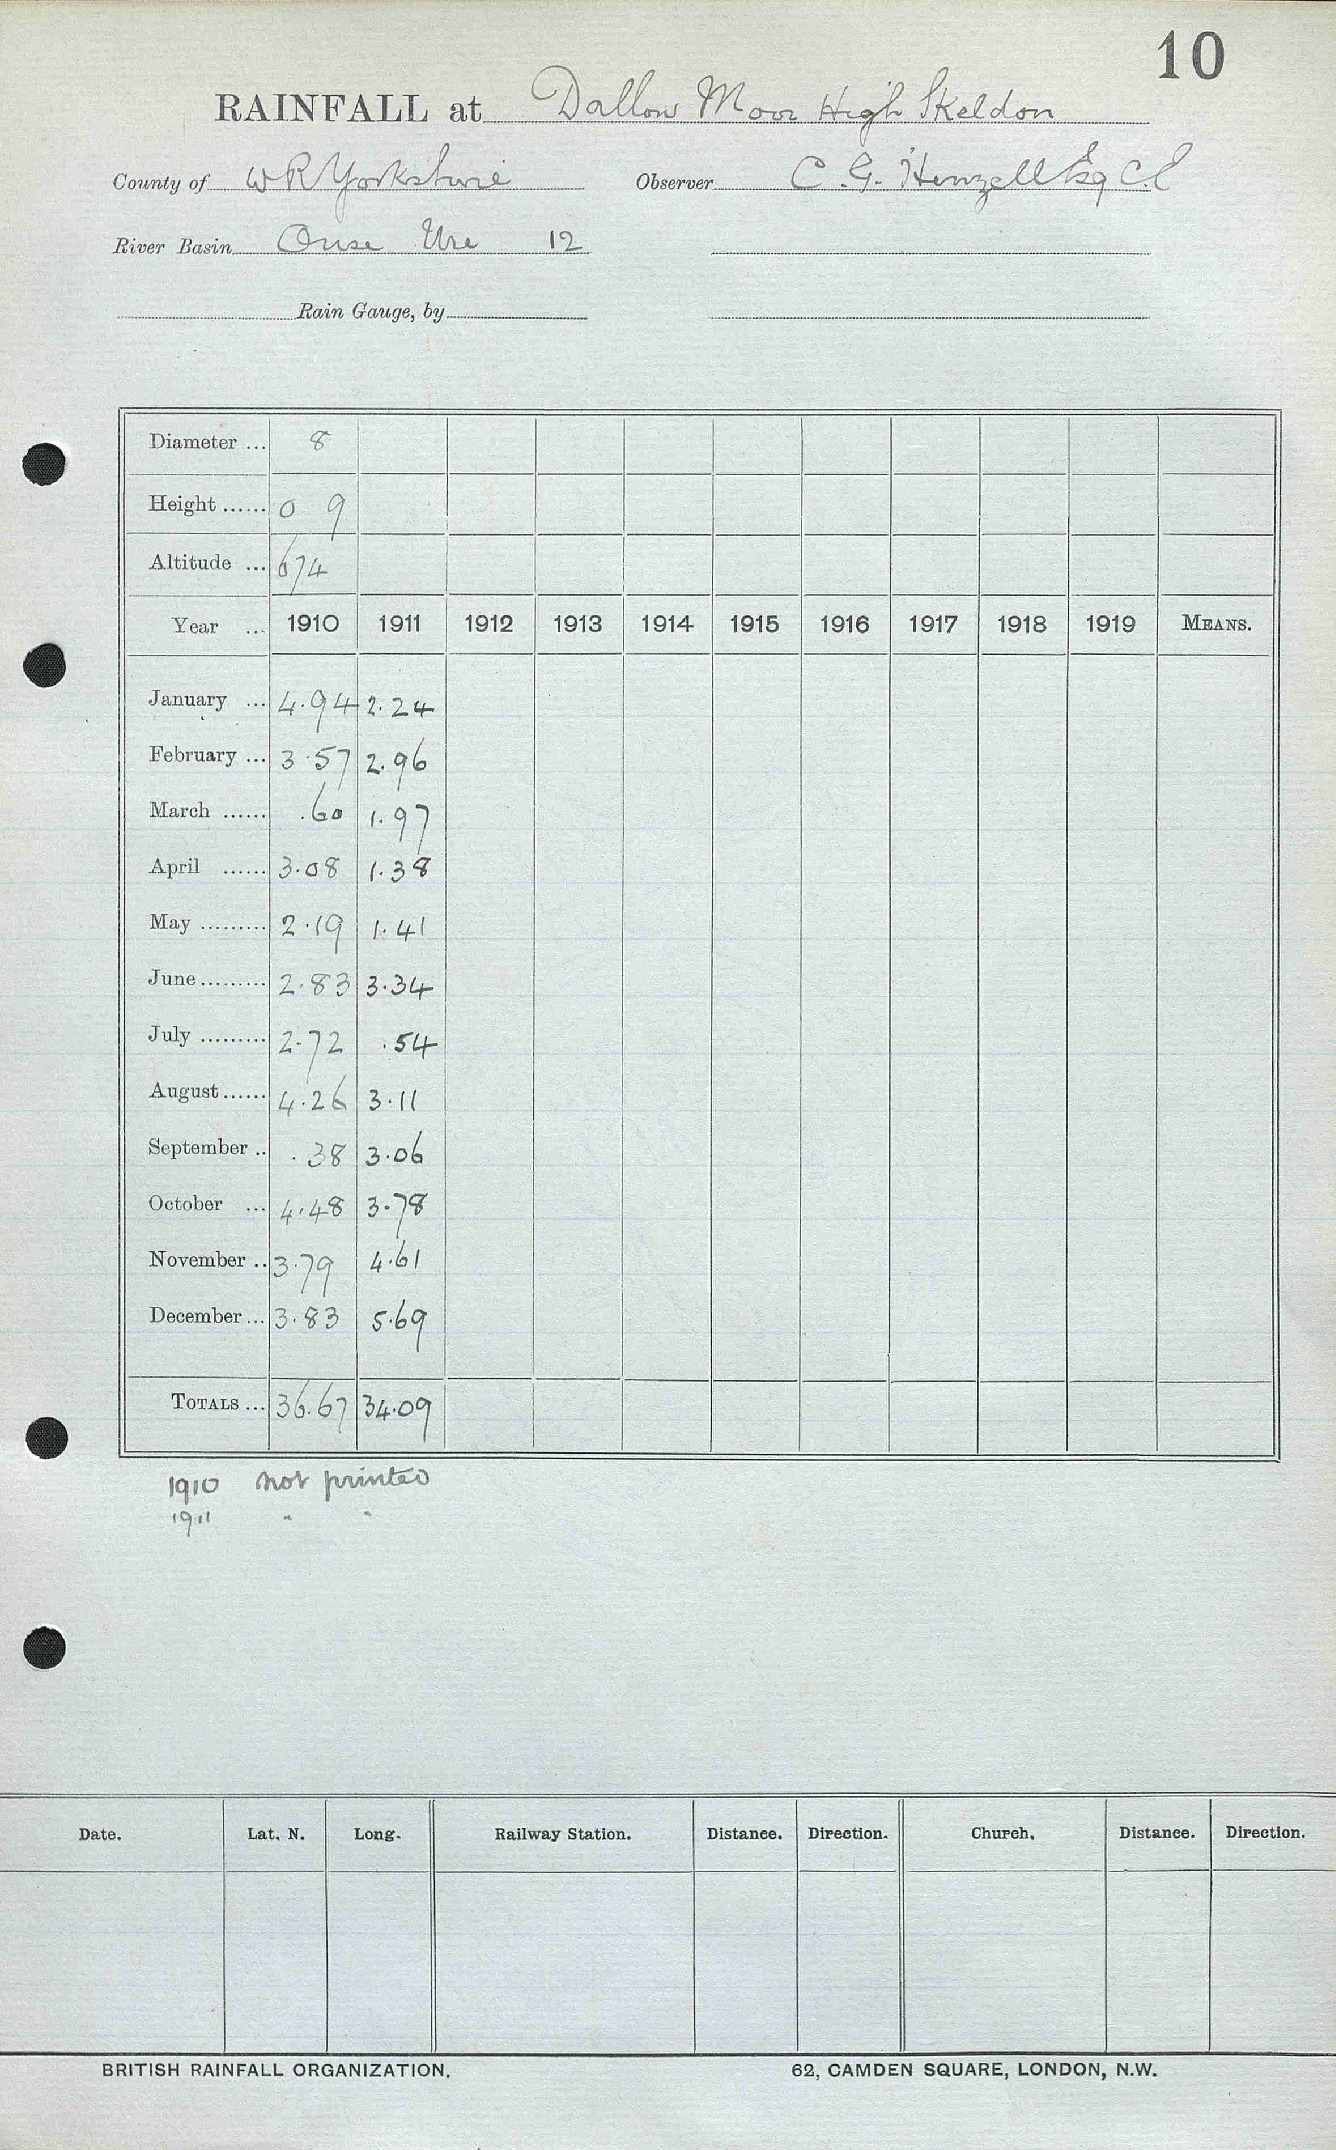 10
RAINFALL at Dallow Moor High Skeldon
County of W R Yorkshire Observer C. G. Henzell Esq C.E
River Basin Ouse Ure 12
Rain Gauge, by
Diameter ... 8
Height ...... 0 9
Altitude ... 674
Year ... 1910 1911 1912 1913 1914 1915 1916 1917 1918 1919 MEANS.
January ... 4.94 2.24
February ... 3.57 2.96
March ...... .60 1.97
April ...... 3.08 1.38
May ......... 2.19 1.41
June ......... 2.83 3.34
July ......... 2.72 .54
August ...... 4.26 3.11
September .. .38 3.06
October ... 4.48 3.78
November .. 3.79 4.61
December ... 3.83 5.69
TOTALS ... 36.67 34.09
1910 not printed
1911 " "
Date. Lat. N. Long. Railway Station. Distance. Direction. Church. Distance. Direction.
BRITISH RAINFALL ORGANIZATION. 62, CAMDEN SQUARE, LONDON, N.W.